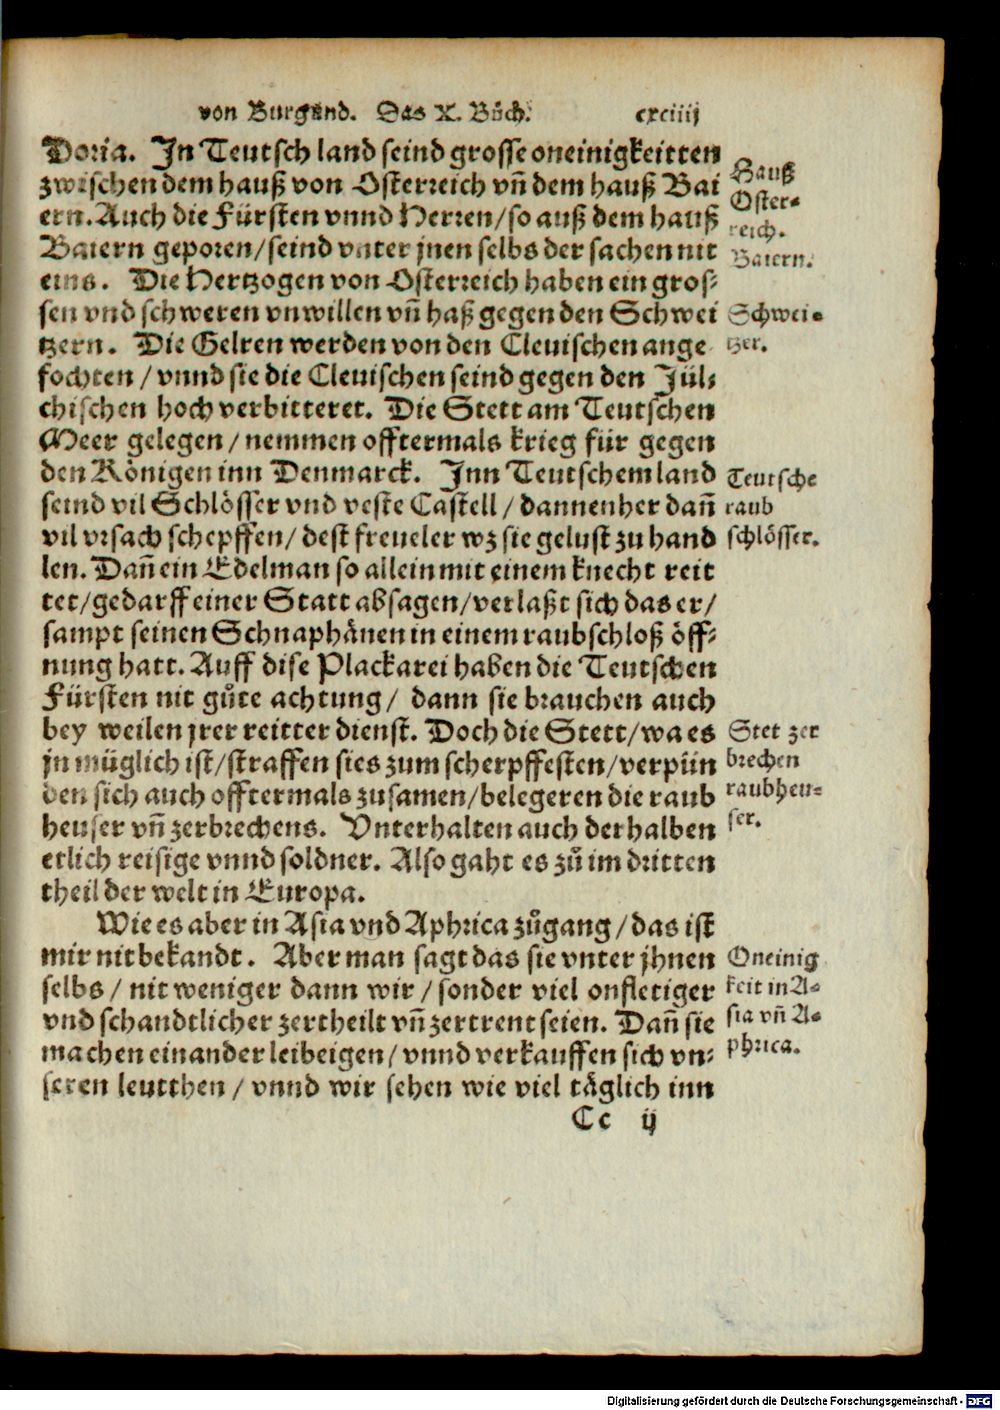 von Burgund. Das X. Bůch. cxciiij
Doria. In Teutsch land seind grosse oneinigkeitten
zwischen dem hauß von Osterreich vñ dem hauß Bai
ern. Auch die Fürsten vnnd Herren/so auß dem hauß
Baiern geporen/seind vnter jnen selbs der sachen nit
eins. Die Hertzogen von Osterreich haben ein gros-
sen vnd schweren vnwillen vñ haß gegen den Schwei
tzern. Die Gelren werden von den Cleuischen ange
fochten/vnnd sie die Cleuischen seind gegen den Jül-
chischen hoch verbitteret. Die Stett am Teutschen
Meer gelegen/nemmen offtermals krieg für gegen
den Königen inn Denmarck. Inn Teutschem land
seind vil Schlösser vnd veste Castell/dannenher dañ
vil vrsach schepffen/dest freueler wz sie gelust zu hand
len. Dañ ein Edelman so allein mit einem knecht reit
tet/gedarff einer Statt absagen/verlaßt sich das er/
sampt seinen Schnaphänen in einem raubschloß öff-
nung hatt. Auff dise Plackarei haben die Teutschen
Fürsten nit gůte achtung/ dann sie brauchen auch
bey weilen jrer reitter dienst. Doch die Stett/wa es
jn müglich ist/straffen sies zum scherpffesten/verpün
den sich auch offtermals zusamen/belegeren die raub
heuser vñ zerbrechens. Vnterhalten auch derhalben
etlich reisige vnnd soldner. Also gaht es zů im dritten
theil der welt in Europa.
Wie es aber in Asia vnd Aphrica zůgang/das ist
mir nit bekandt. Aber man sagt das sie vnter jhnen
selbs/ nit weniger dann wir/sonder viel onfletiger
vnd schandtlicher zertheilt vñ zertrent seien. Dañ sie
machen einander leibeigen/vnnd verkauffen sich vn-
seren leutthen/vnnd wir sehen wie viel täglich inn
Cc ij
Hauß
Oster-
reich.
Baiern.
Schwei-
tzer.
Teutsche
raub
schlösser.
Stet zer
brechen
raubheu-
ser.
Oneinig
keit in A-
sia vñ A-
phrica.
Digitalisierung gefördert durch die Deutsche Forschungsgemeinschaft - DFG